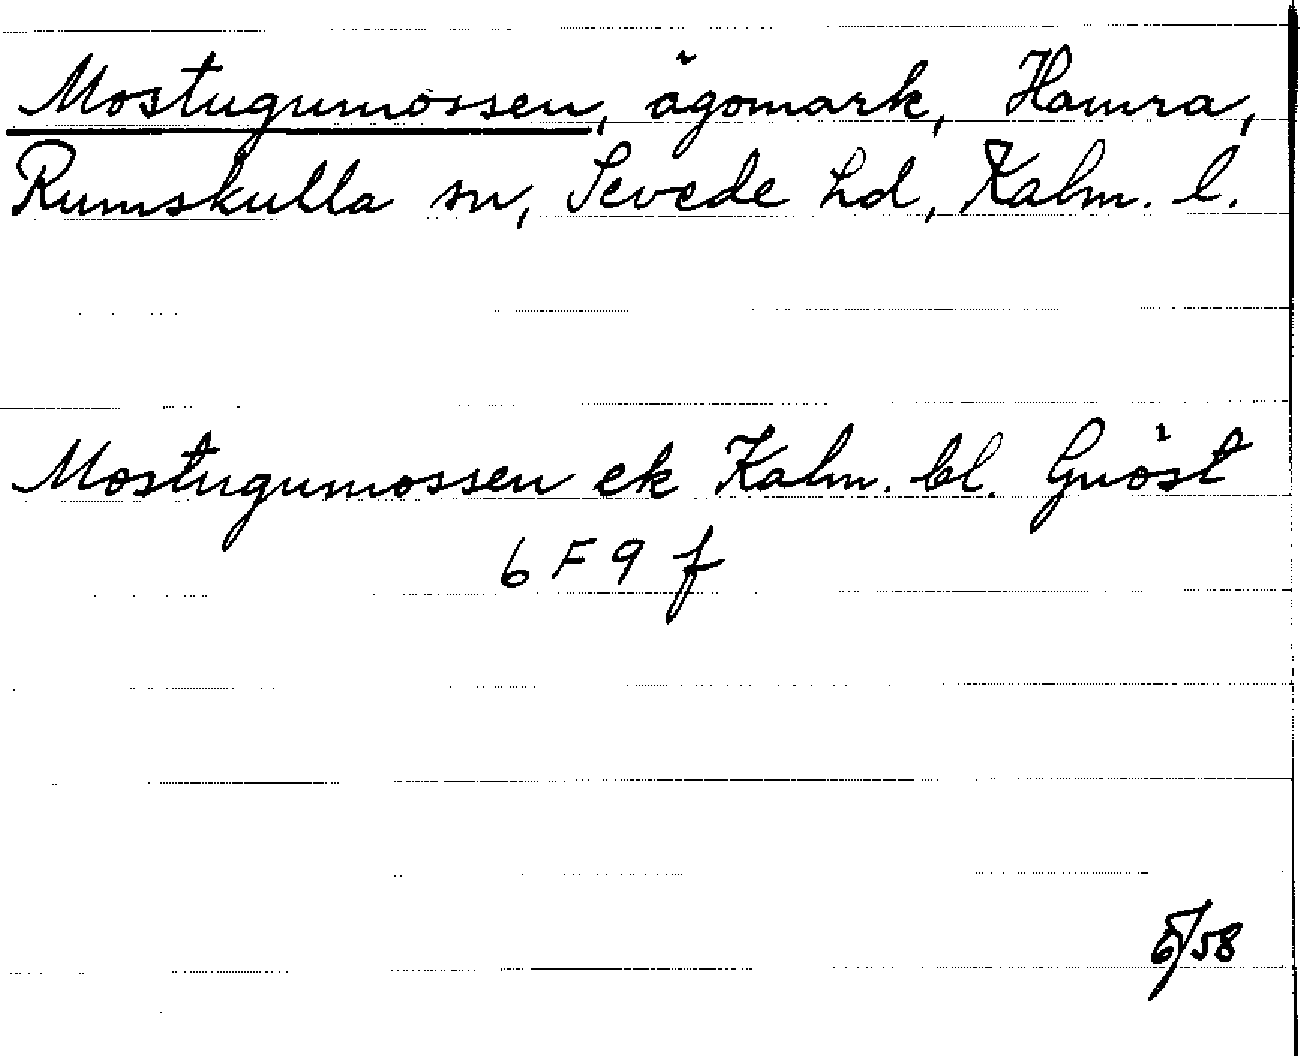 Mostugumossen, ägomark, Hamra,
Rumskulla sn, Sevede hd, Kalm. l.
Mostugumossen ek Kalm. bl. Gnöst
6 F 9 f
6/58